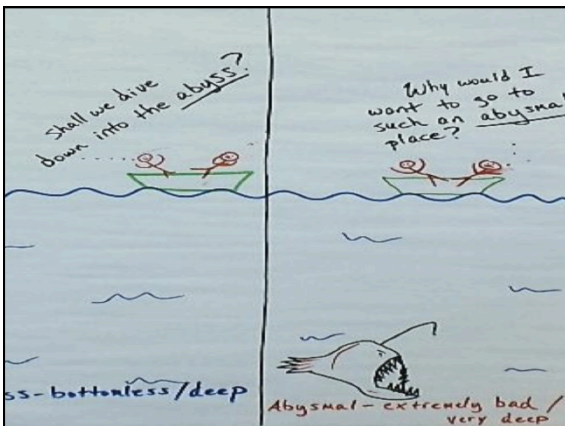 Shall we dive
down into the abyss?
Why would I
want to go to
such an abysmal
place?
ss-bottomless/deep
Abysmal - extremely bad /
very deep